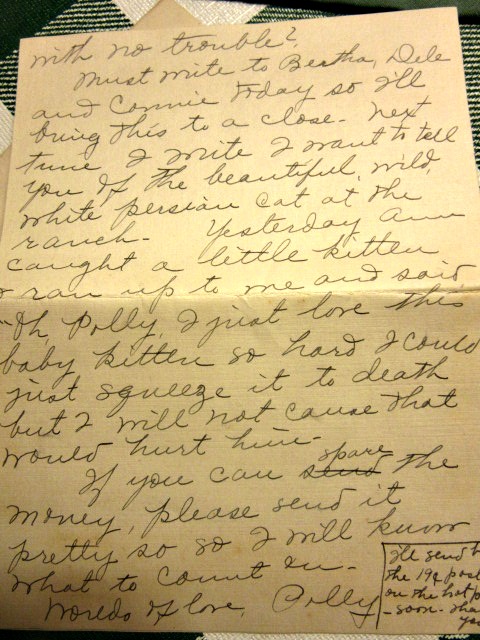 with no trouble?
Must write to Bertha, Dele
and Connie today so I'll
bring this to a close - Next
time I write I want to tell
you of the beautiful, wild,
white persian cat at the
ranch - Yesterday Ann
caught a little kitten
& ran up to me and said
"Oh, Polly, I just love this
baby kitten so hard I could
just squeeze it to death
but I will not cause that
would hurt him -
If you can send spare the
money, please send it
pretty so so I will know
what to count on -
Words of love, Polly
I'll send
the 19¢ post
on the hot p
- soon -